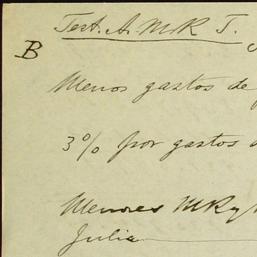 Test. A. M K T.
B
Menos gastos de
3% por gastos
Menores MKy
Julia